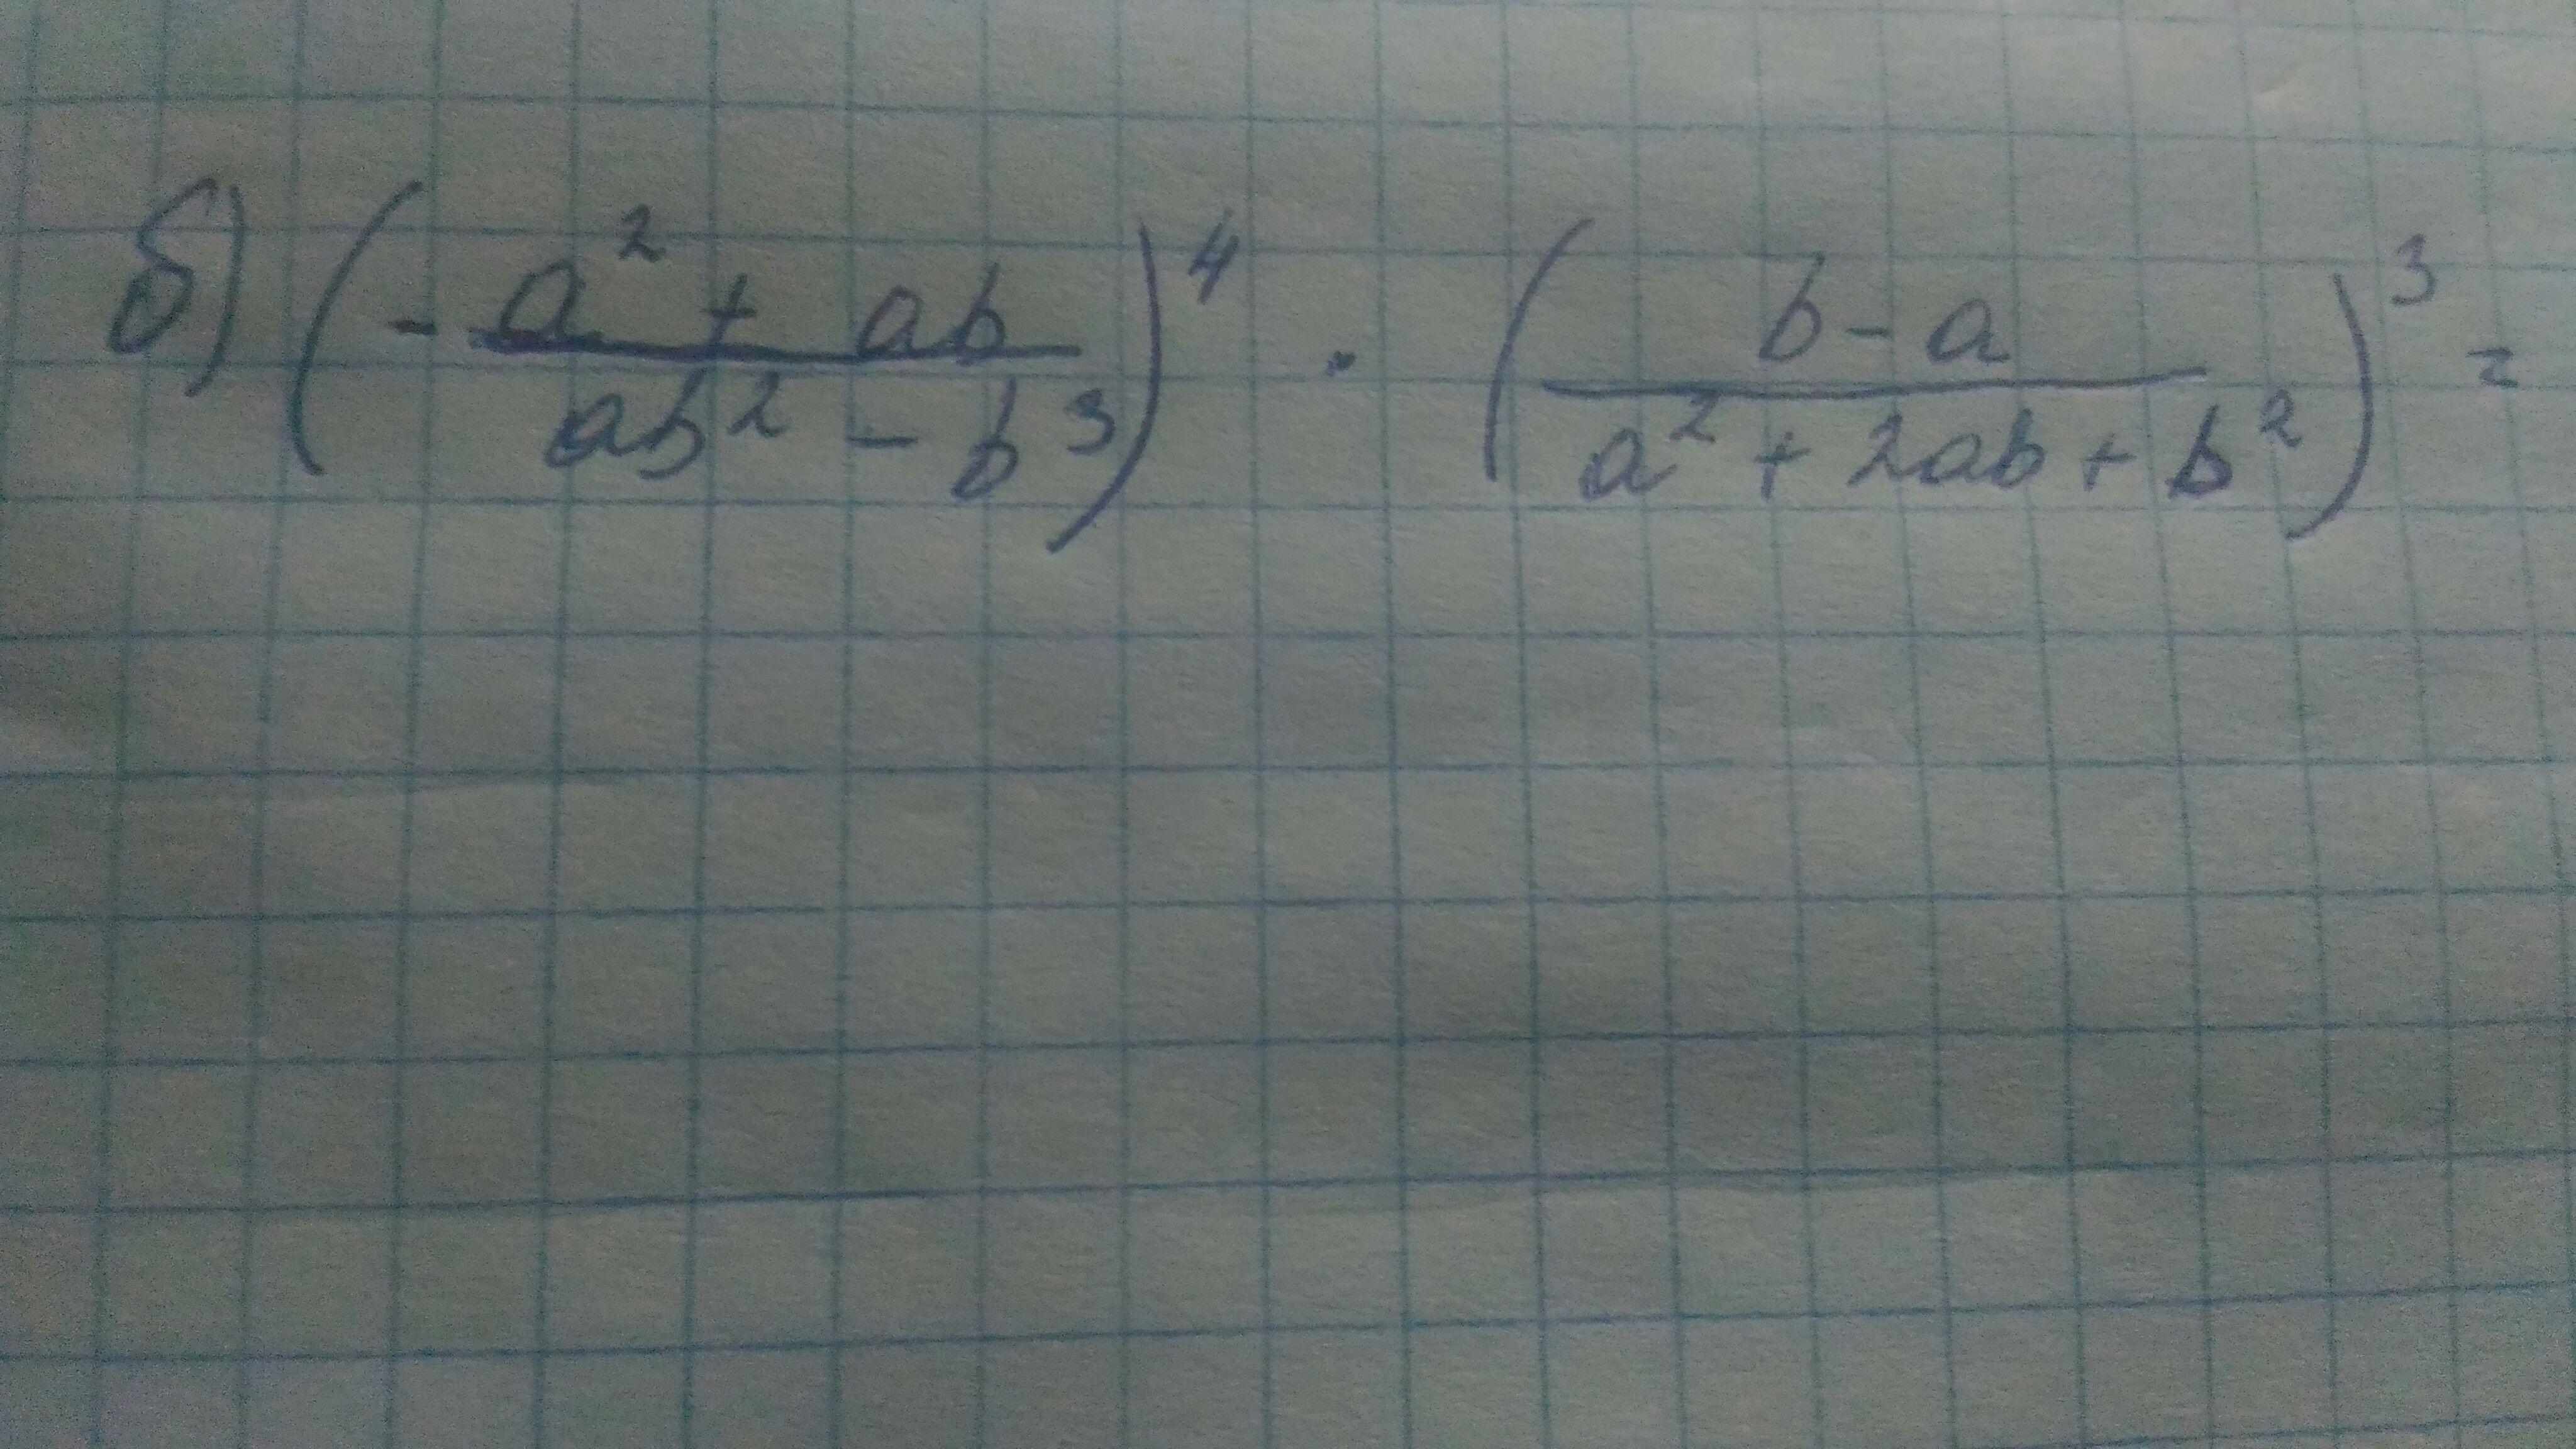 б) (- (a² + ab)/(ab² - b³))⁴ · ((b - a)/(a² + 2ab + b²))³ =